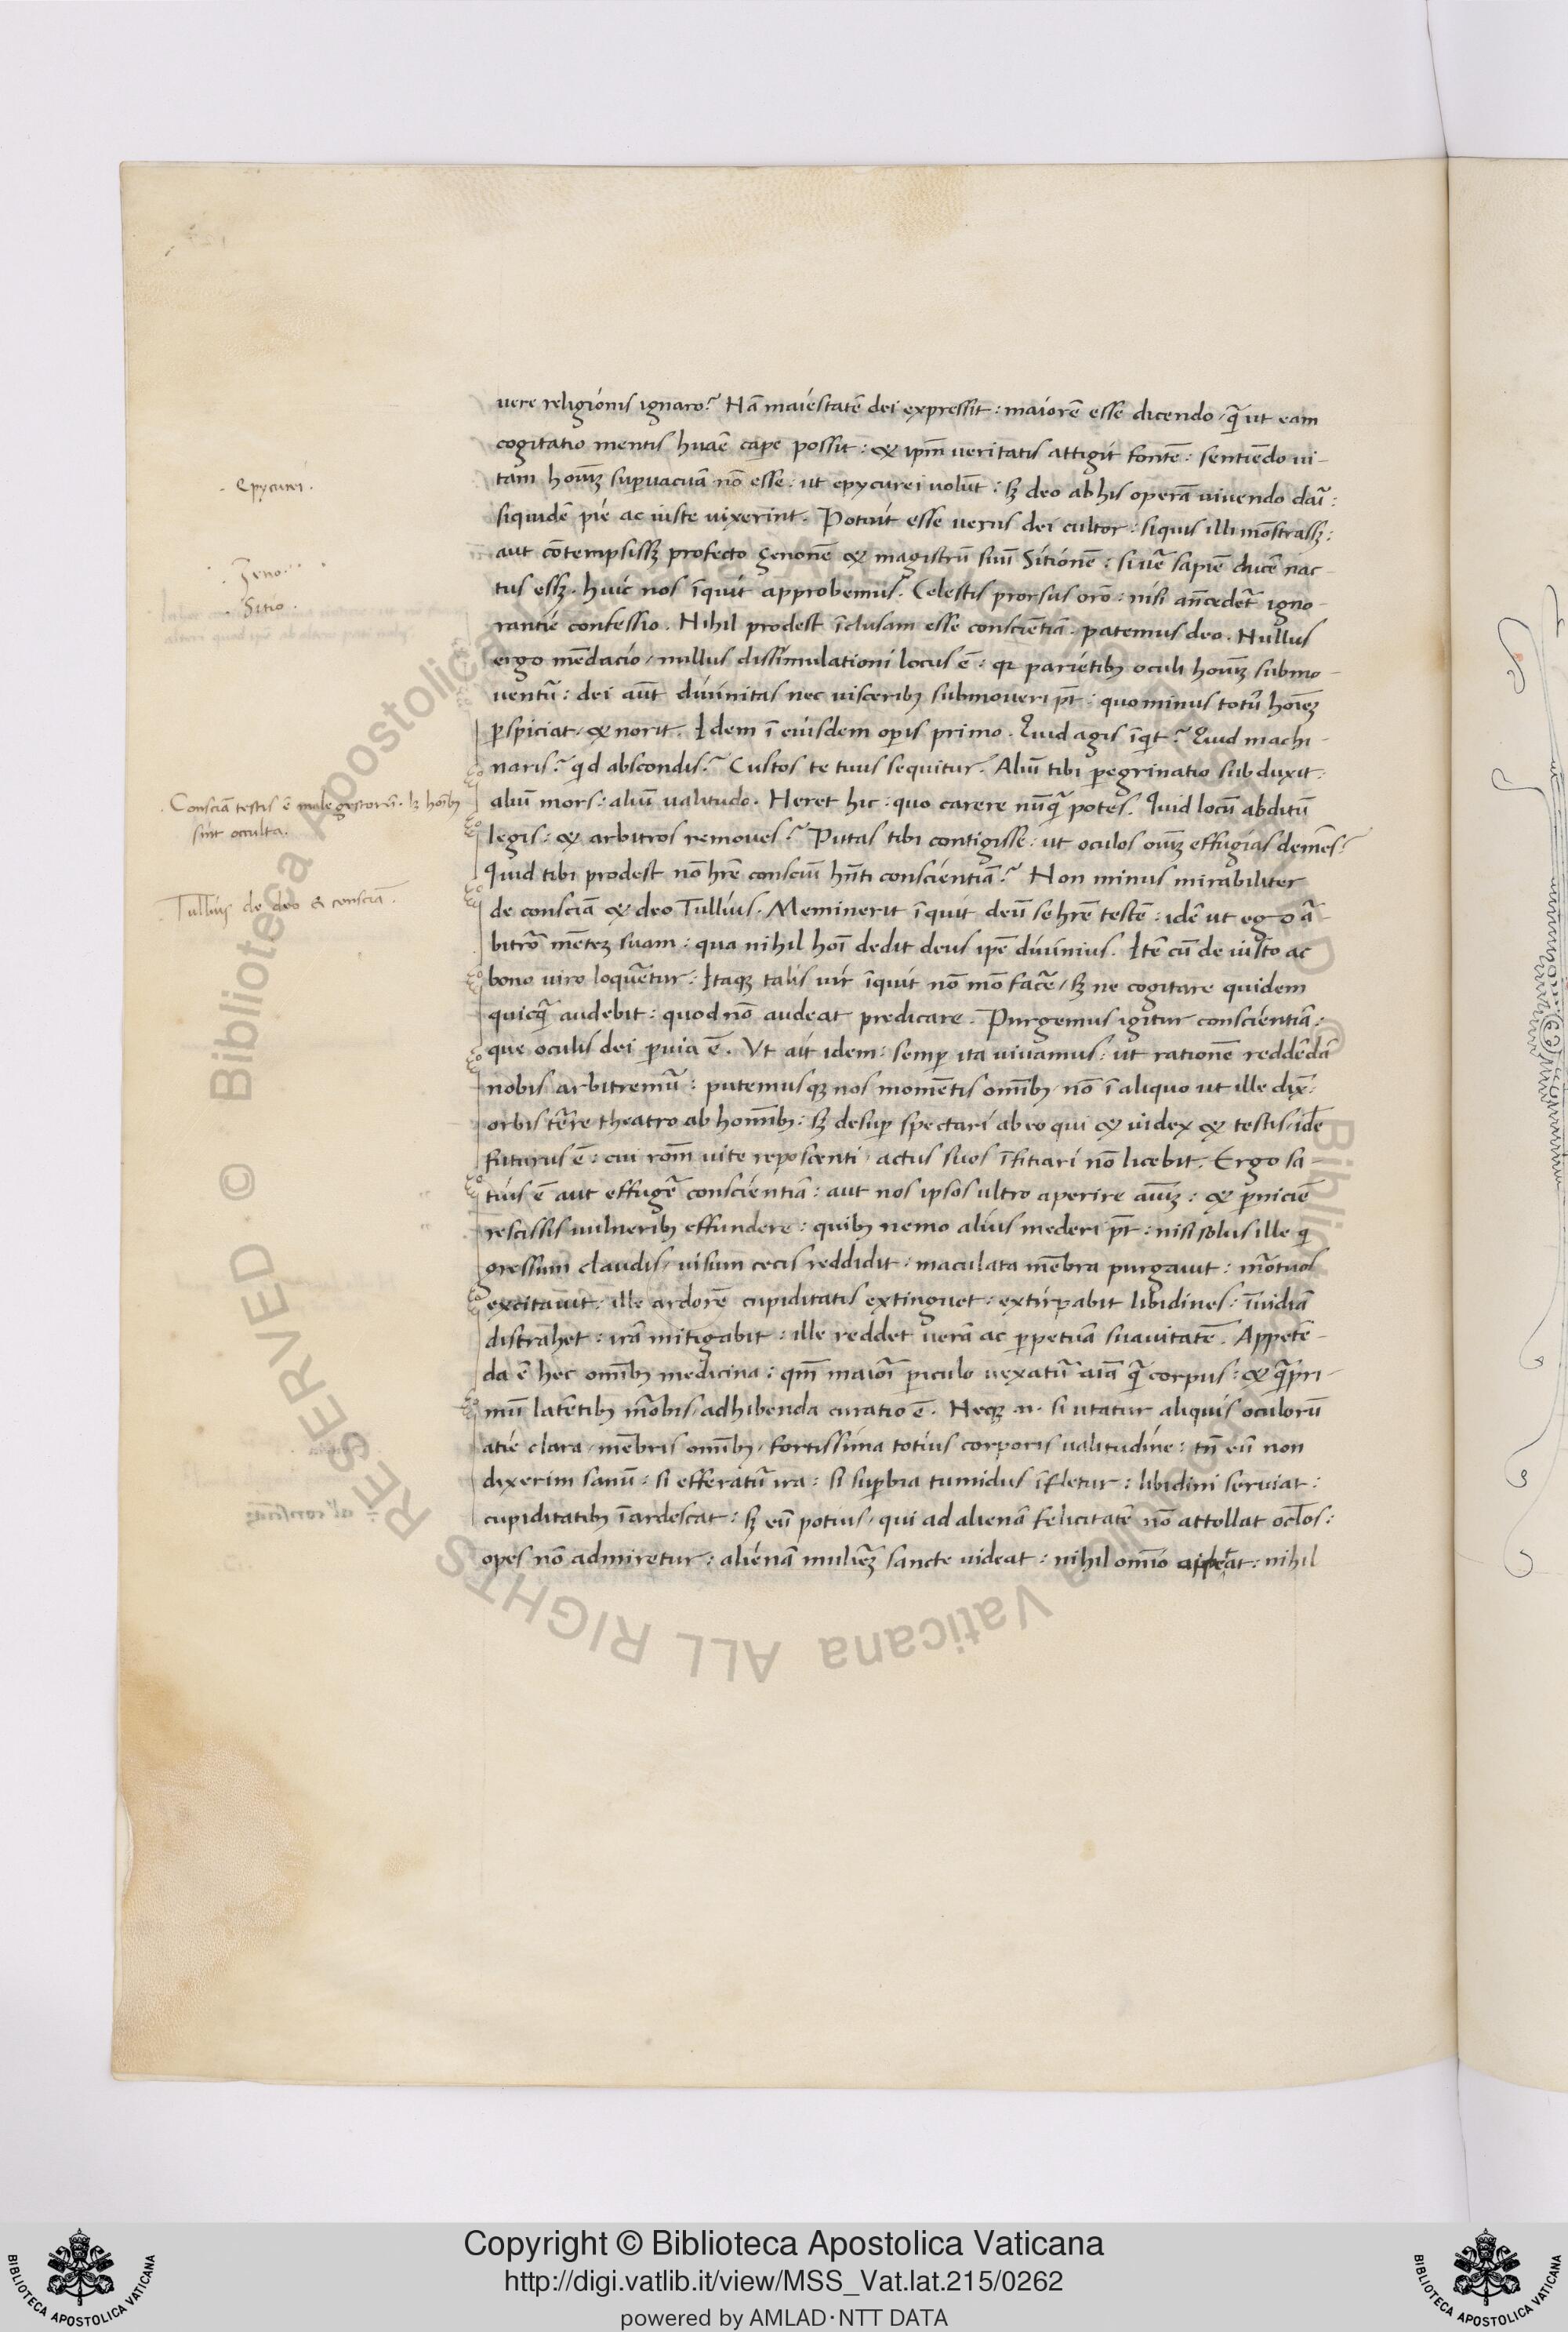 vere religionis ignaro? Nã maiestatẽ dei expressit: maiorẽ esse dicendo / q̃ ut eam
cogitatio mentis huãe cape possit: & ipm̃ veritatis attigit fontẽ: sentiẽdo vi-
tam hoim̃ supvacuã nõ esse: ut epycurei volũt: sꝫ deo ab his operã vivendo dari:
siquidẽ pie ac iuste vixerint. Potuit esse verus dei cultor: siquis illi mõstrassꝫ:
aut cõtempsissꝫ profecto çenonẽ & magistrũ suũ Sitionẽ: si verẽ sapiẽ ducẽ nac-
tus essꝫ. huic nos ĩquit approbemus. Celestis prorsus orõ: nisi añcedet̃ igno-
rantie confessio. Nihil prodest ĩclusam esse conscientiã. patemus deo. Nullus
ergo mẽdacio / nullus dissimulationi locus ẽ: qr parietibꝫ oculi hoim̃ submo-
ventur̃: dei aũt divinitas nec visceribꝫ submoveri pt̃: quominus totũ hoiẽꝫ
pspiciat / & norit. Idem ĩ eiusdem opis primo. Quid agis ĩqt? Quid machi-
naris? qd abscondis? Custos te tuus sequitur. Aliũ tibi pegrinatio subduxit:
aliũ mors: aliũ valitudo. Heret hic: quo carere nũq̃ potes. Quid locũ abditũ
legis: & arbitros removes? Puttas tibi contigisse: ut oculos oim̃ effugias demẽs?
Quid tibi prodest nõ hrẽ consciũ hñti conscientiã? Non minus mirabiliter
de consciã & deo Tullius. Meminerit ĩquit deũ se hrẽ testẽ: idẽ ut ego ã-
bitrõr mẽteꝫ suam: qua nihil hoĩ dedit deus ipẽ divinius. Itẽ cũ de iusto ac
bono viro loqueretur: Itaqꝫ talis vir ĩquit nõ mõ facẽ / sꝫ ne cogitare quidem
quicq̃ audebit: quod nõ audeat predicare. Purgemus igitur conscientiã:
que oculis dei pvia ẽ. Vt ait idem: semp ita vivamus: ut rationẽ reddẽdã
nobis arbitremur̃: putemusqꝫ nos momẽtis omĩbꝫ / nõ ĩ aliquo ut ille dix̃:
orbis tẽrre theatro ab homĩbꝫ: sꝫ desup spectari ab eo qui & iudex & testis / idẽ
futurus ẽ: cui rom̃ vite reposcenti / actus suos ĩfitiari nõ licebit. Ergo sa-
tius ẽ aut effugẽ conscientiã: aut nos ipsos ultro aperire aĩuꝫ: & pniciẽ
rescissis vulneribꝫ effundere: quibꝫ nemo alius mederi pt̃: nisi solus ille q
gressum claudis / visum cecis reddidit: maculata mẽbra purgavit: mõrtuos
excitavit: ille ardorẽ cupiditatis extinguet: extirpabit libidines: ĩvidiã
distrahet: irã mitigabit: ille reddet verã ac ppetuã suavitatẽ. Appetẽ-
da ẽ hec omĩbꝫ medicina: qm̃ maioĩ piculo vexatur̃ aĩa q̃ corpus: & q̃pri-
mũ latẽtibꝫ mõrbis / adhibenda curatio ẽ. Neqꝫ .n. si utatur aliquis oculorũ
atie clara / mẽbris omĩbꝫ / fortissima totius corporis valitudine: tñ eũ non
dixerim sanũ: si efferatur̃ ira: si supbia tumidus ĩfletur: libidini serviat:
cupiditatibꝫ ĩardescat: sꝫ eũ potius / qui ad alienã felicitatẽ nõ attollat oclos:
opes nõ admiretur: alienã muliẽꝫ sancte videat: nihil omĩo appetat: nihil
. epycurei .
. Zeno .
. Sitio .
. Consciã testis ẽ male gestorũ. lꝫ hoĩbꝫ
sint occulta.
. Tullius de deo & consciã .
Copyright © Biblioteca Apostolica Vaticana
http://digi.vatlib.it/view/MSS_Vat.lat.215/0262
powered by AMLAD·NTT DATA
BIBLIOTECA APOSTOLICA VATICANA
BIBLIOTECA APOSTOLICA VATICANA
© Biblioteca Apostolica Vaticana ALL RIGHTS RESERVED